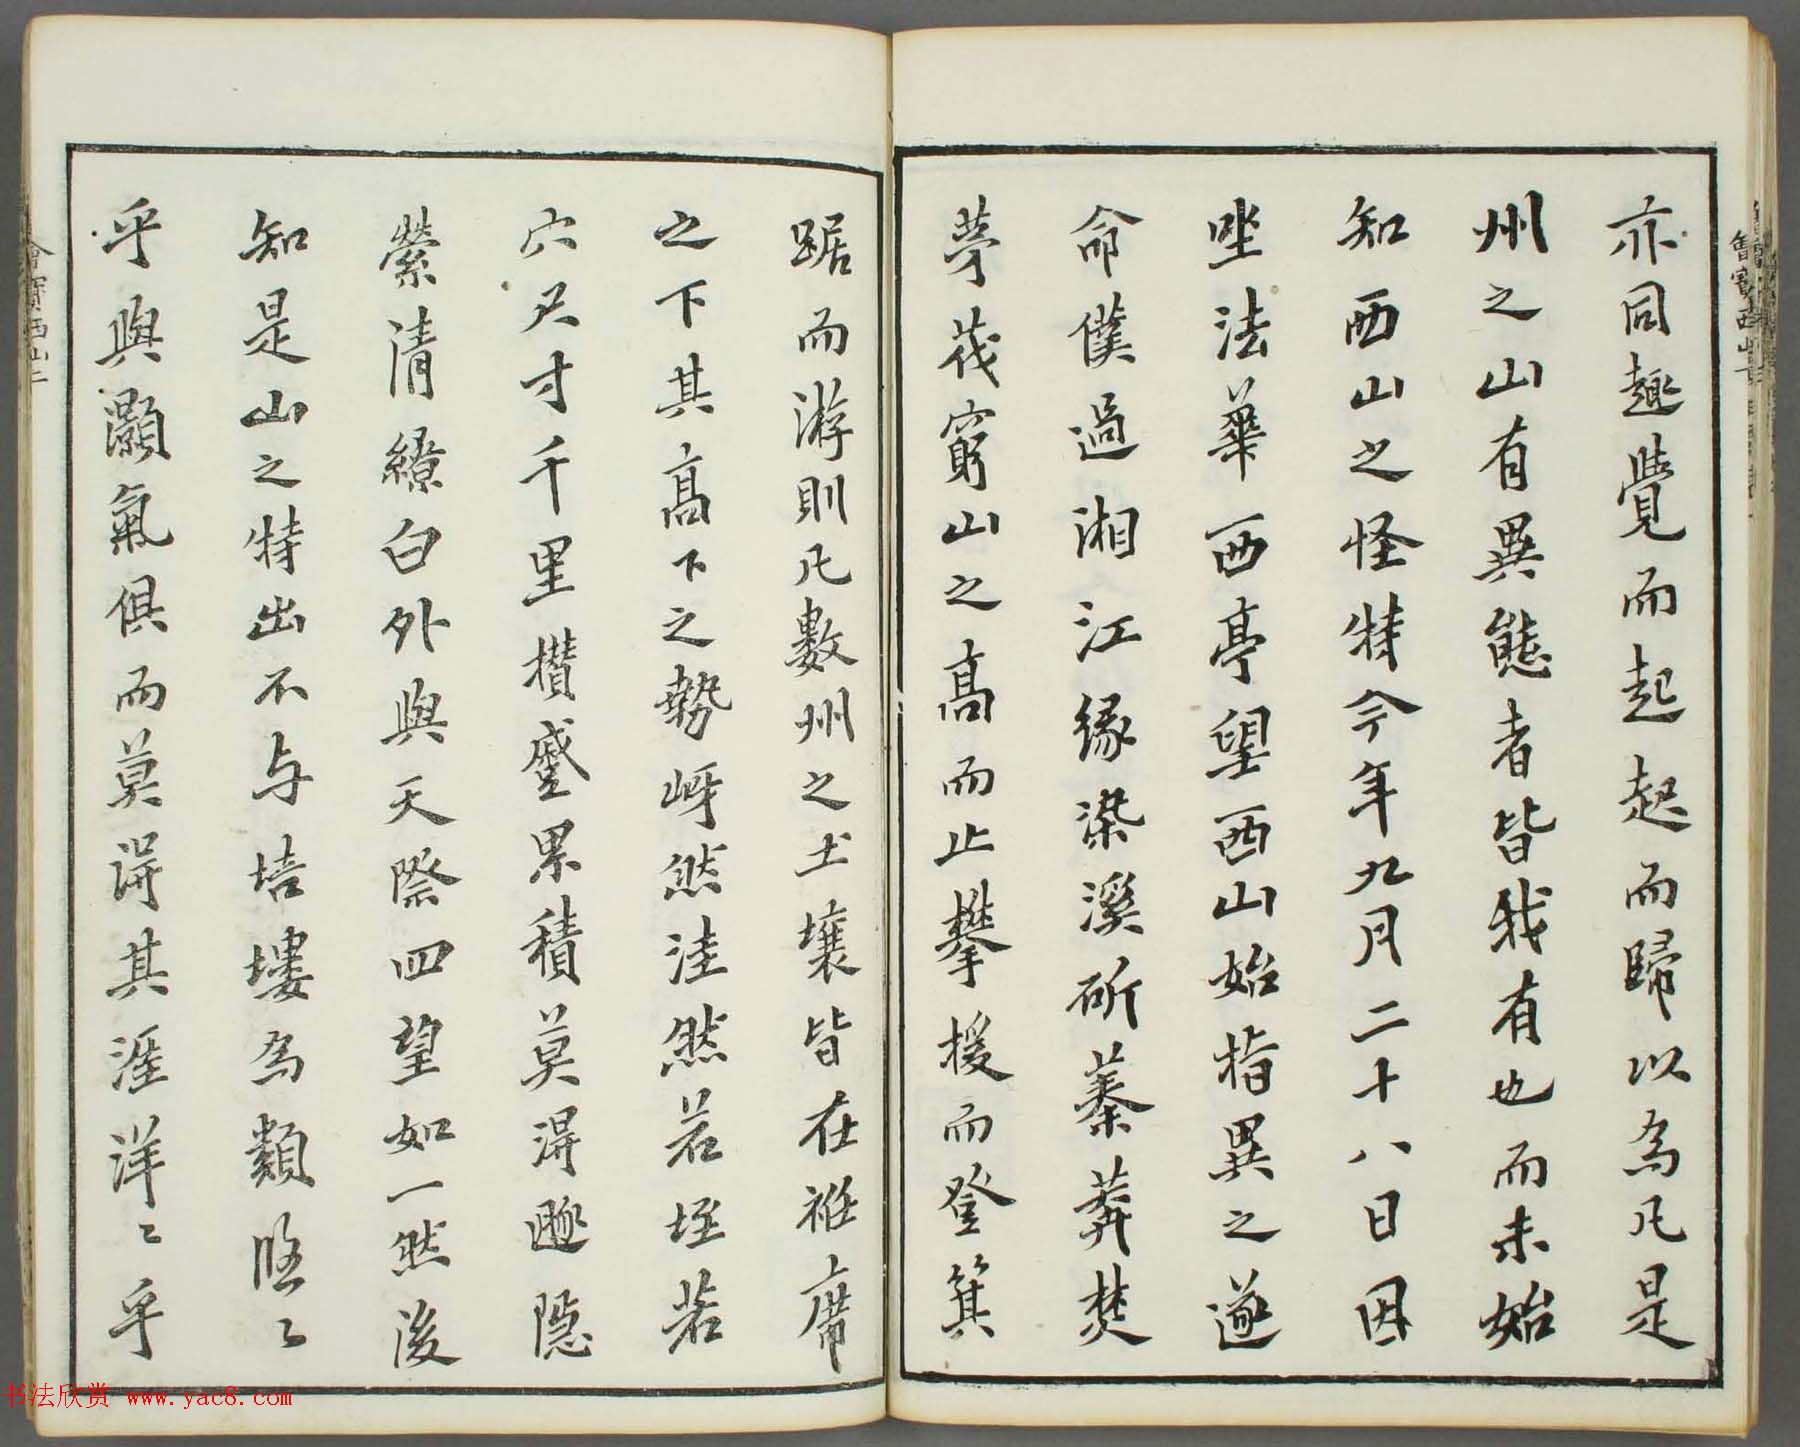 亦同趣覺而起起而歸以為凡是
州之山有異態者皆我有也而未始
知西山之怪特今年九月二十八日因
坐法華西亭望西山始指異之遂
命僕過湘江緣染溪斫蓁莽焚
茅茷窮山之高而止攀援而登箕
踞而游則凡數州之土壤皆在袵席
之下其高下之勢岈然洼然若垤若
穴尺寸千里攢蹙累積莫得遯隱
縈清繚白外與天際四望如一然後
知是山之特出不与培塿為類悠〻
乎與灝氣俱而莫得其涯洋〻乎
會寶西山二
书法欣赏 www.yac8.com